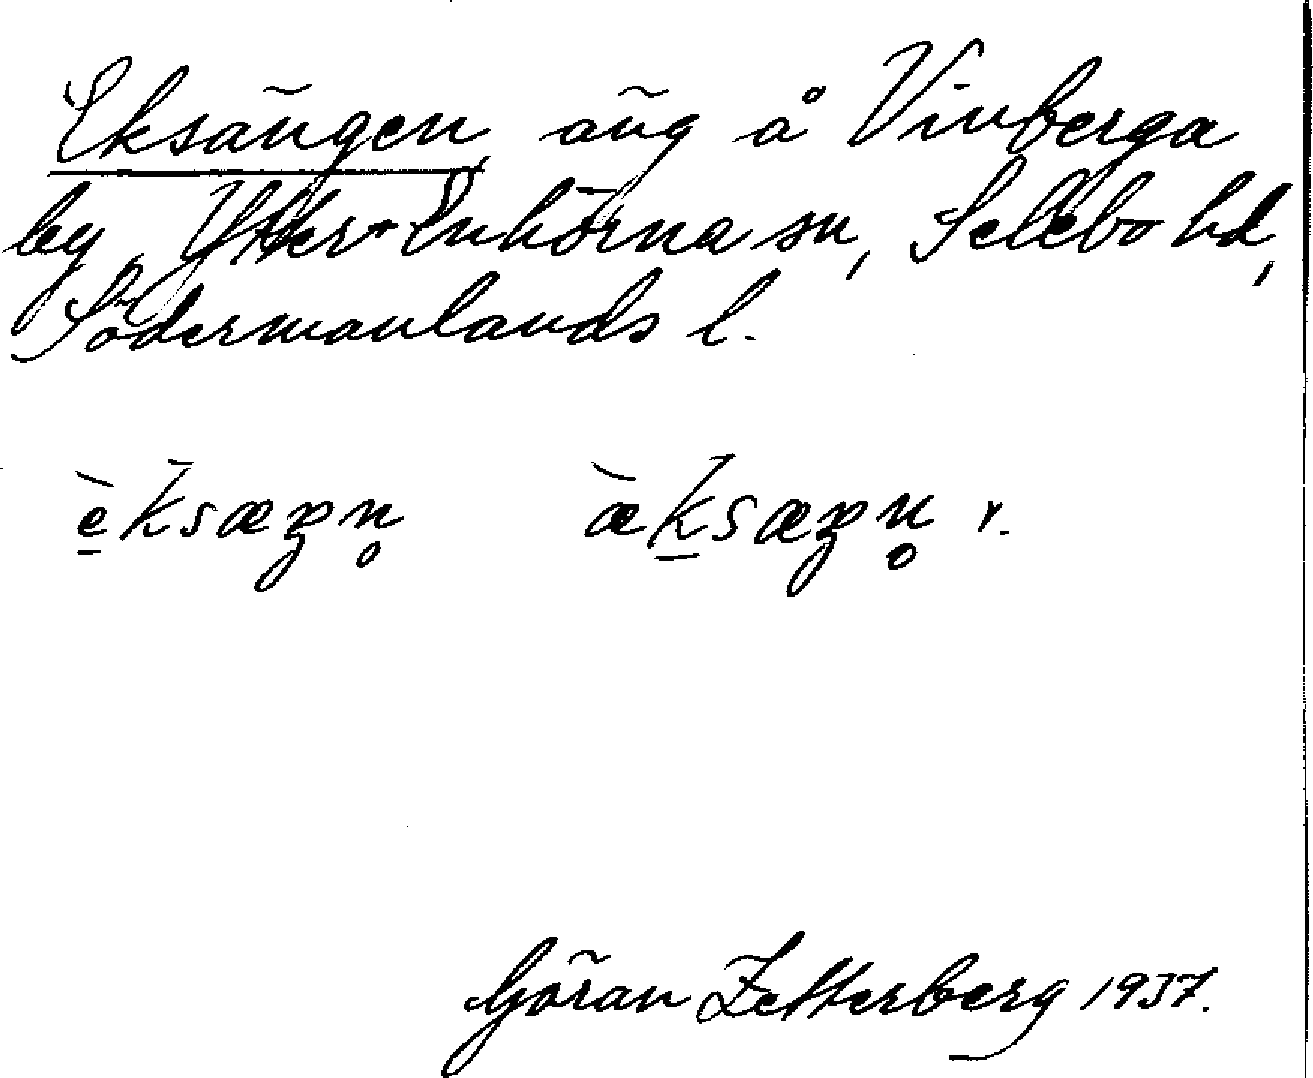 Eksängen, äng å Vinberga
by, Ytter-Enhörna sn, Selebo hd,
Södermanlands l.
è̱ksæŋn̥ æ̀ḵsæŋn̥ r.
Göran Zetterberg 1937.